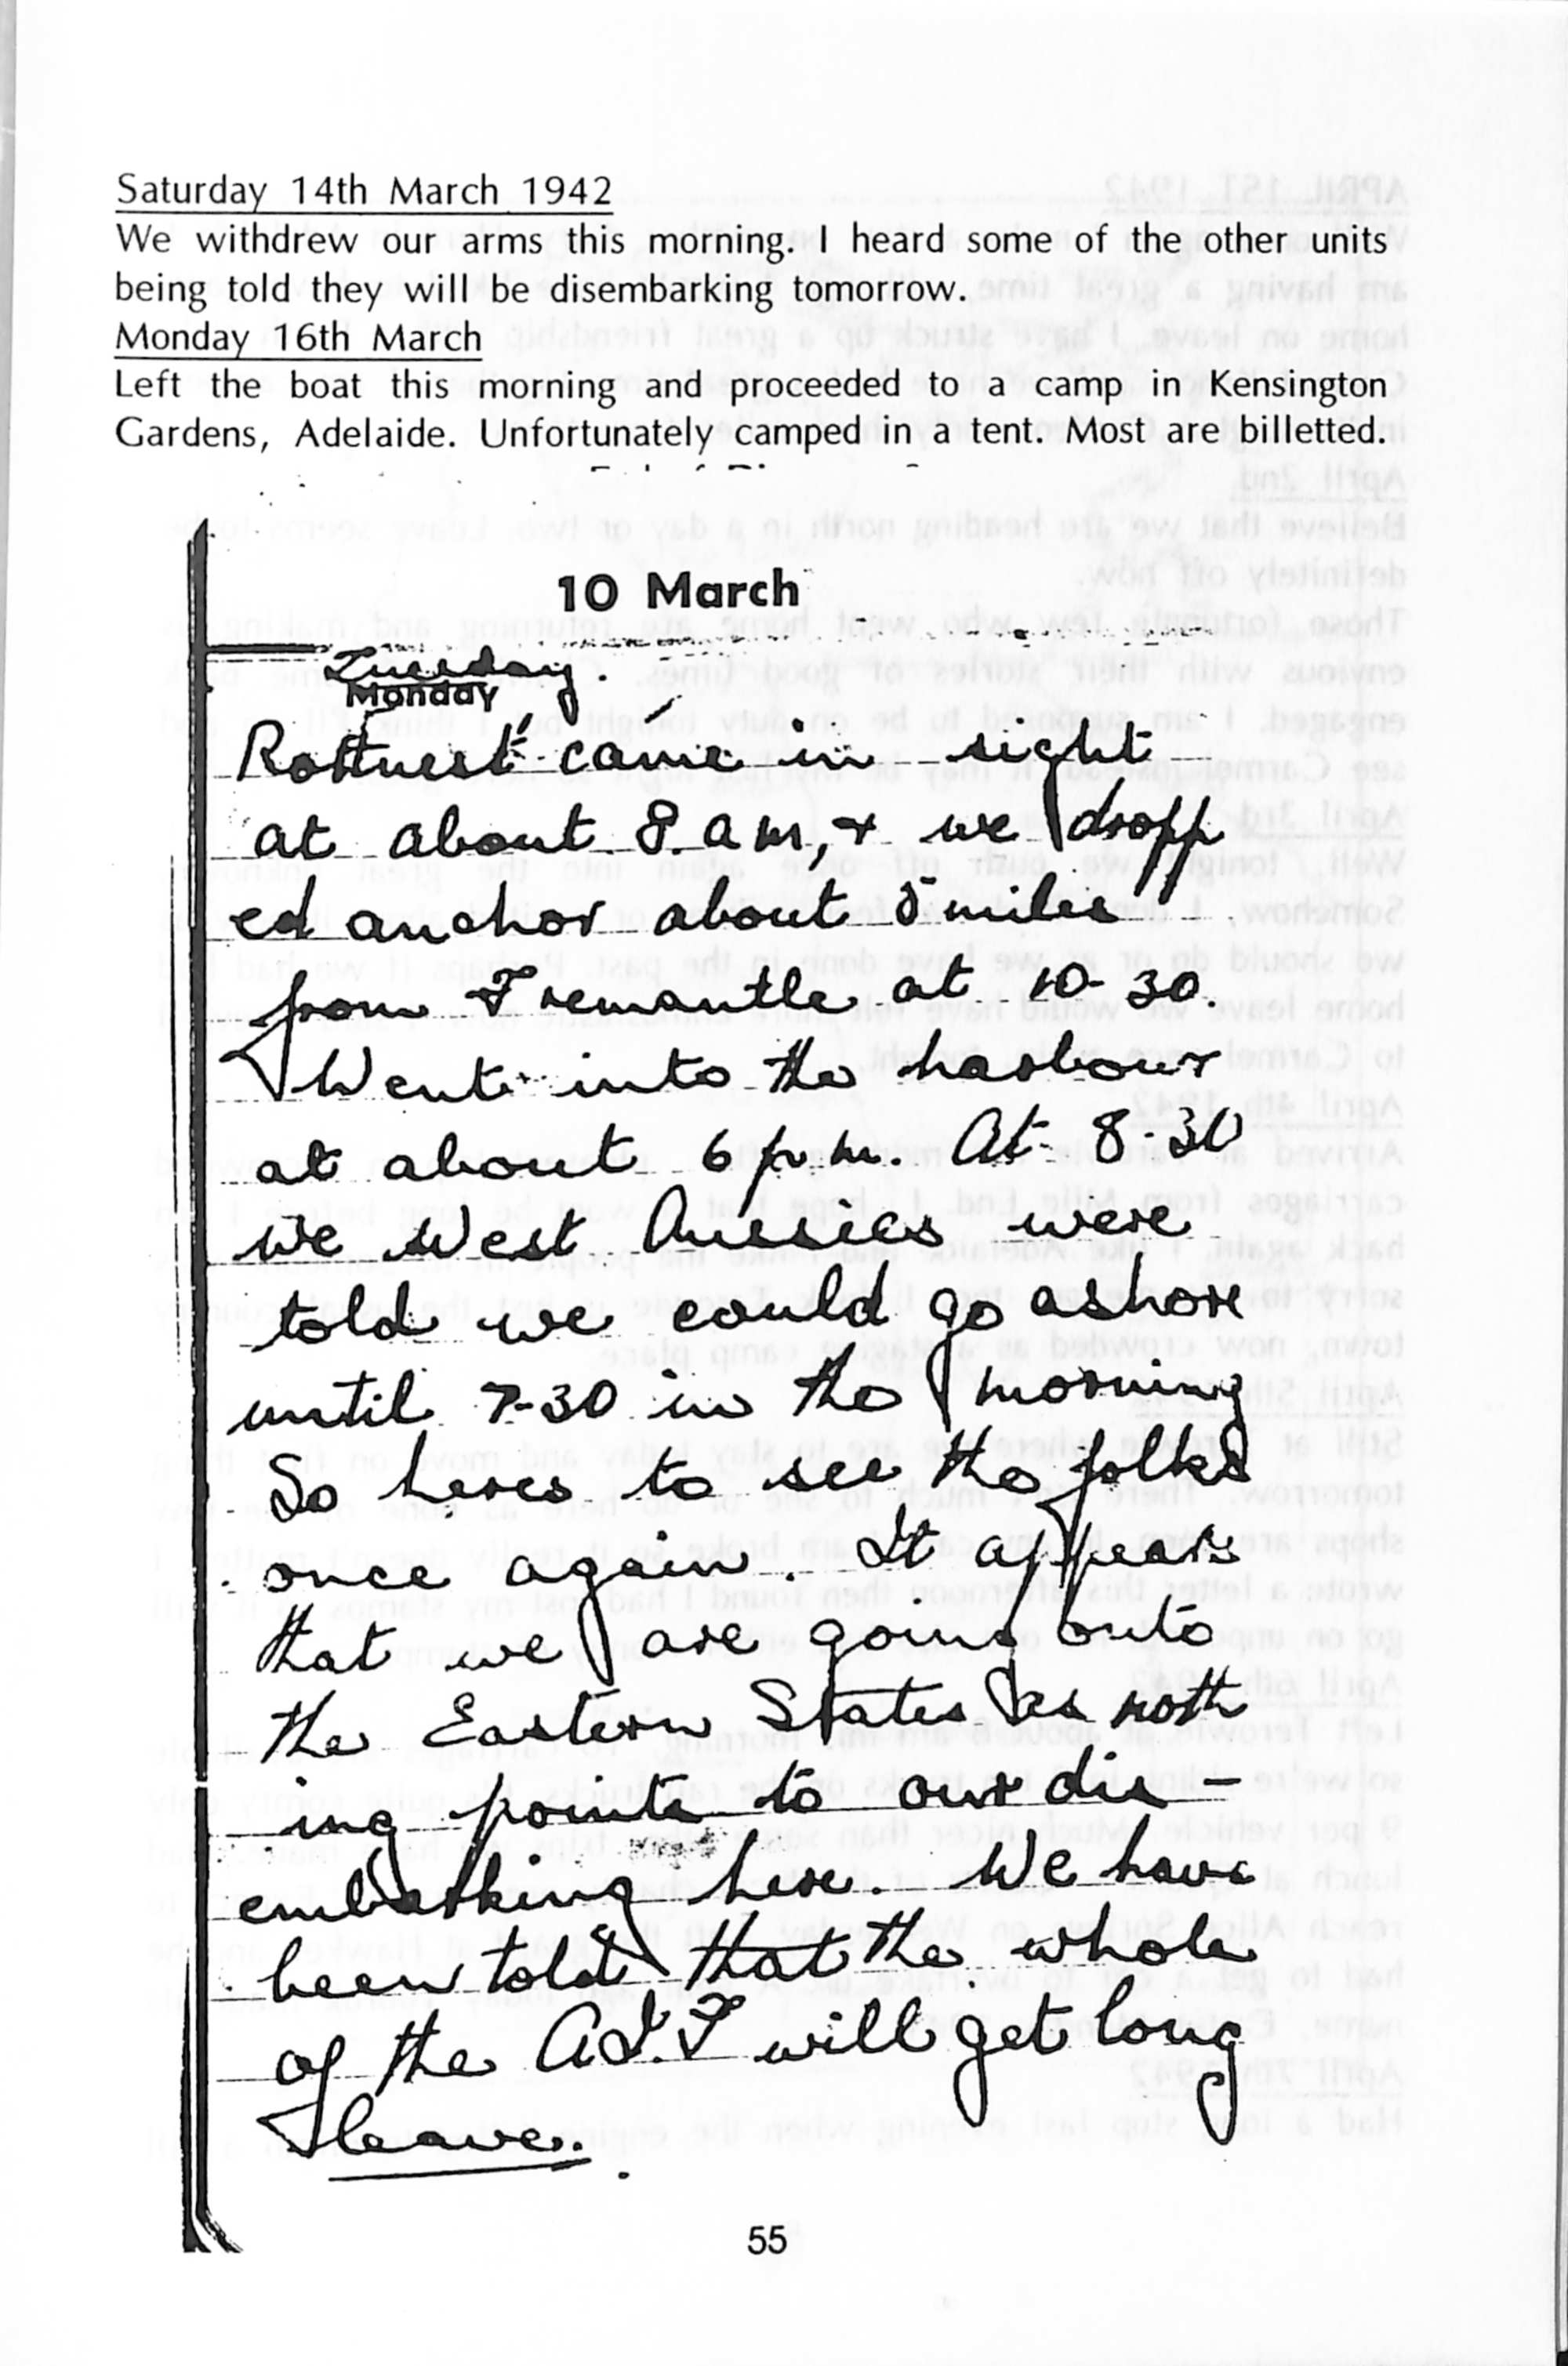 Saturday 14th March 1942
We withdrew our arms this morning. I heard some of the other units
being told they will be disembarking tomorrow.
Monday 16th March
Left the boat this morning and proceeded to a camp in Kensington
Gardens, Adelaide. Unfortunately camped in a tent. Most are billetted.
10 March
Tuesday.
Monday
"Rottnest" came in sight
at about 8. a m, + we dropp
ed anchor about 5 miles
from Fremantle at 10-30
Went into the harbour
at about 6 p.m. At 8-30
we West Aussies were
told we could go ashore
until 7-30 in the morning
So heres to see the folks
once again. It appears
that we are going onto
the Eastern States as noth
ing points to our dis -
embarking here. We have
been told that the whole
of the A.I.F will get long
leave.
55